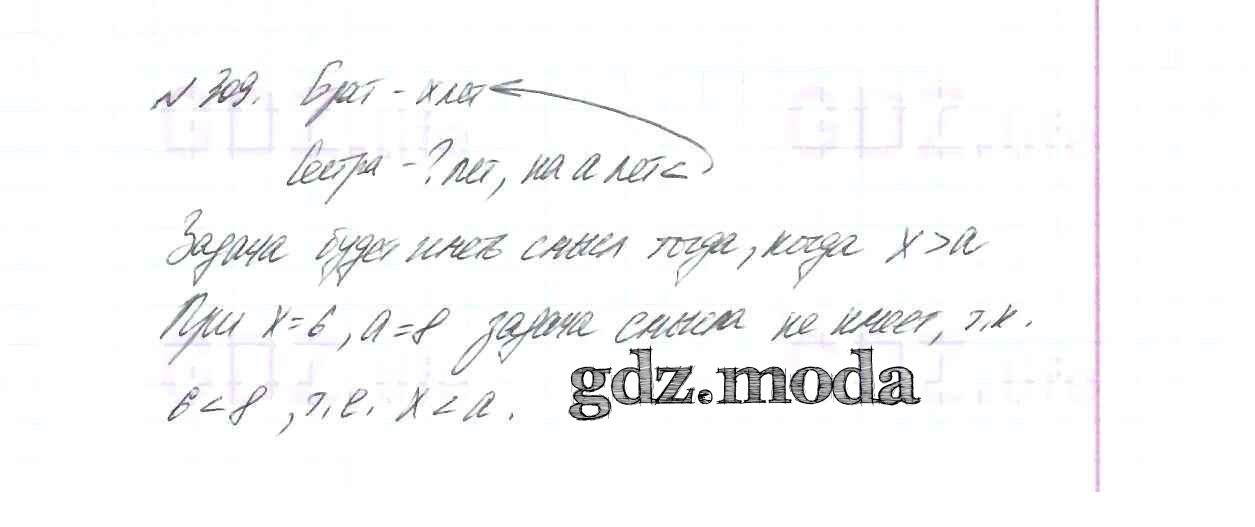 № 309. Брат - х лет
Сестра - ? лет, на а лет <
Задача будет иметь смысл тогда, когда х > а
При х = 6, а = 8 задача смысла не имеет, т.к.
6 < 8, т.е. х < а.
gdz.moda